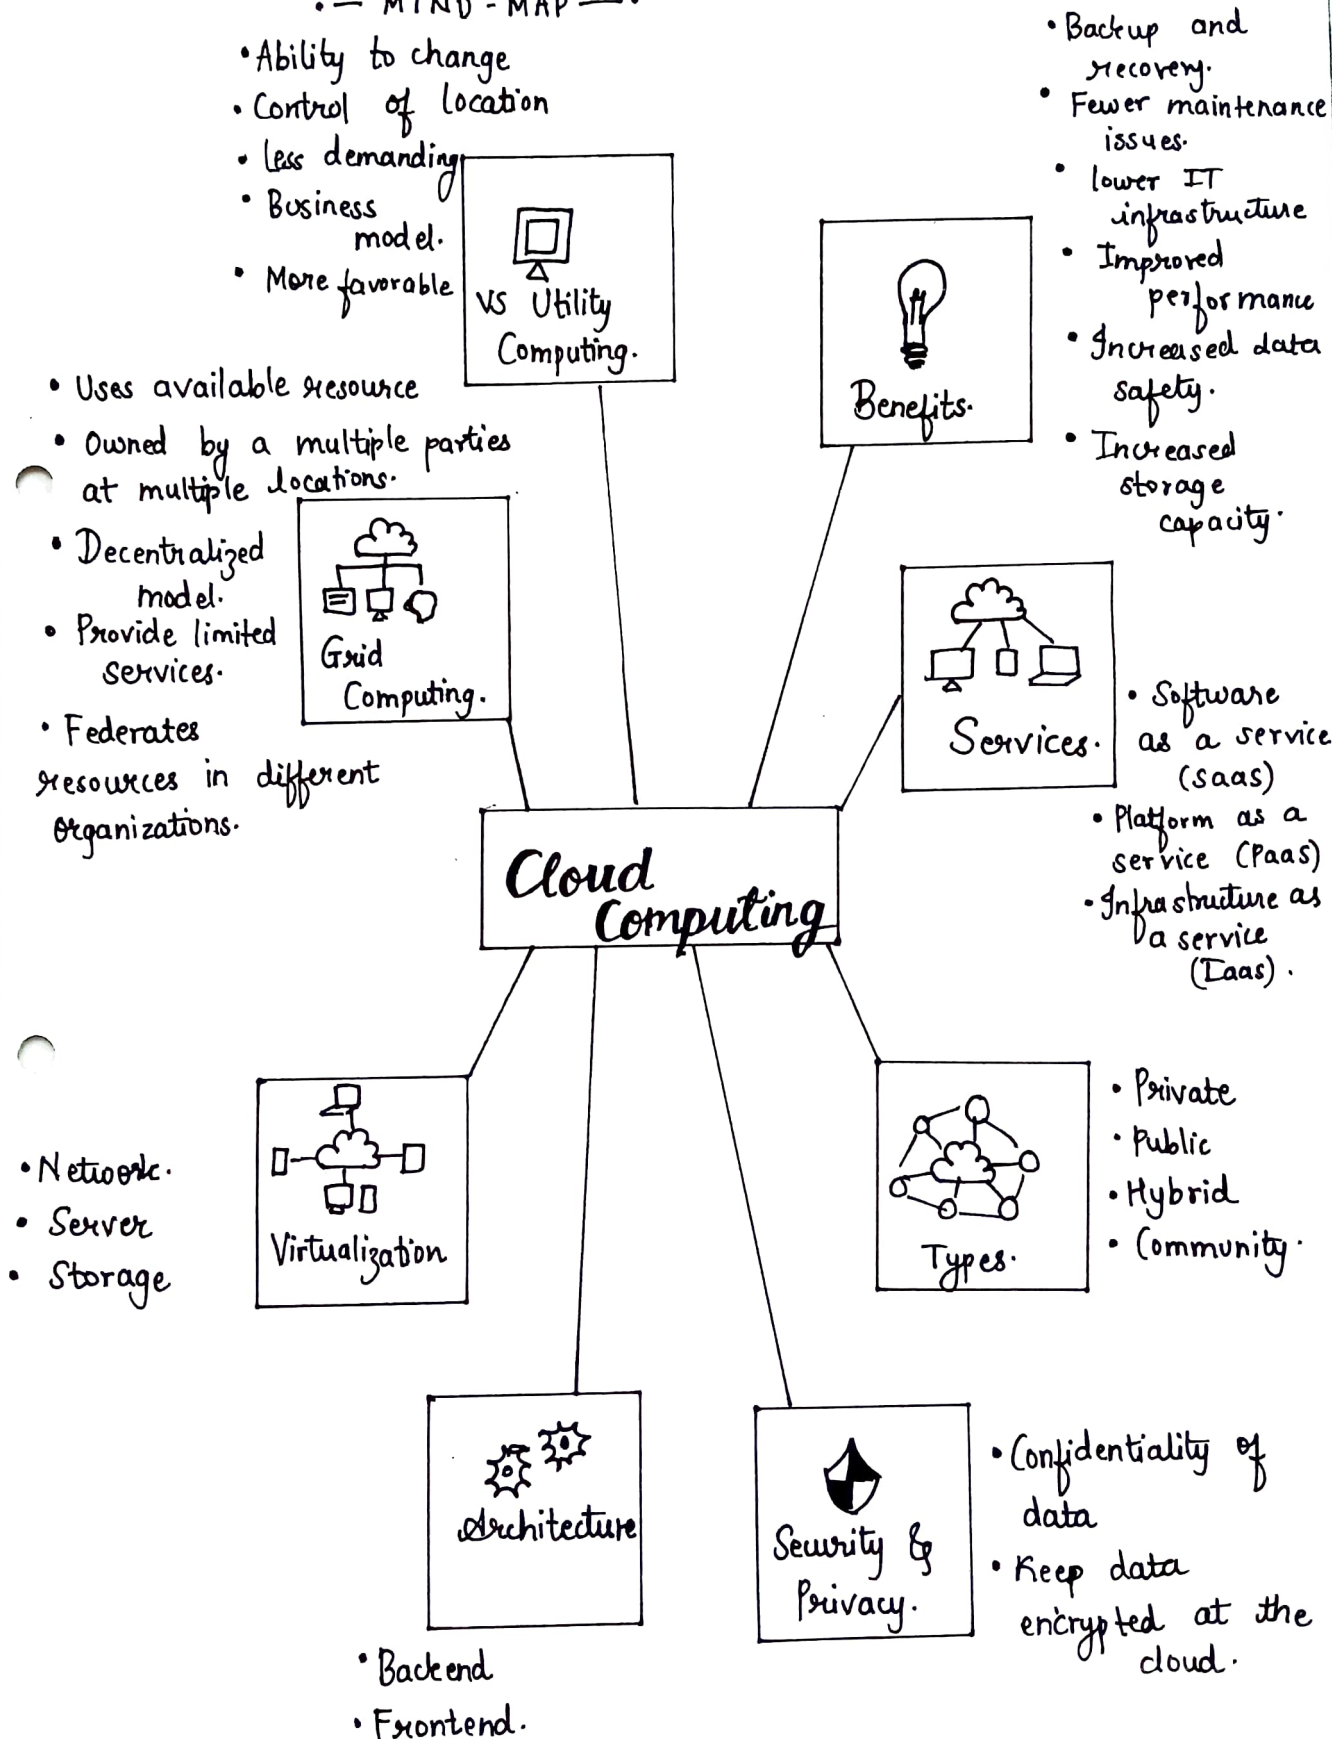 • — MIND - MAP — •
• Ability to change
• Control of location
• less demanding
• Business
model.
• More favorable
VS Utility
Computing.
• Backup and
recovery.
• Fewer maintenance
issues.
• lower IT
infrastructure
• Improved
performance
• Increased data
safety.
• Increased
storage
capacity.
Benefits.
• Uses available resource
• Owned by a multiple parties
at multiple locations.
• Decentralized
model.
• Provide limited
services.
• Federates
resources in different
organizations.
Grid
Computing.
Services.
• Software
as a service
(saas)
• Platform as a
service (Paas)
• Infrastructure as
a service
(Iaas).
Cloud
Computing
• Network.
• Server
• Storage
Virtualization
Types.
• Private
• Public
• Hybrid
• Community.
Architecture
• Backend
• Frontend.
Security &
Privacy.
• Confidentiality of
data
• Keep data
encrypted at the
cloud.